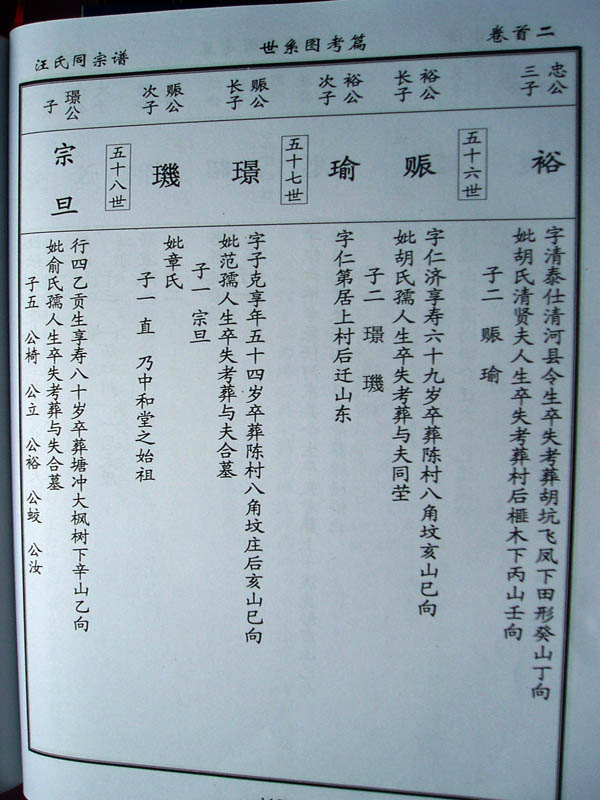 汪氏同宗谱
世系图考篇
卷首二
忠公
三子
裕
字清泰仕清河县令生卒失考葬胡坑飞凤下田形癸山丁向
妣胡氏清贤夫人生卒失考葬村后榧木下丙山壬向
子二 赈 瑜
五十六世
裕公
长子
赈
字仁济享寿六十九岁卒葬陈村八角坟亥山巳向
妣胡氏孺人生卒失考葬与夫同茔
子二 璟 璣
裕公
次子
瑜
字仁第居上村后迁山东
五十七世
赈公
长子
璟
字子克享年五十四岁卒葬陈村八角坟庄后亥山巳向
妣范孺人生卒失考葬与夫合墓
子一 宗旦
赈公
次子
璣
妣章氏
子一 直 乃中和堂之始祖
五十八世
璟公
子
宗旦
行四乙贡生享寿八十岁卒葬塘冲大枫树下辛山乙向
妣俞氏孺人生卒失考葬与失合墓
子五 公椅 公立 公裕 公蛟 公汝